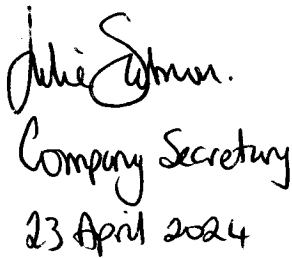 Julie
Company Secretary
23 April 2024